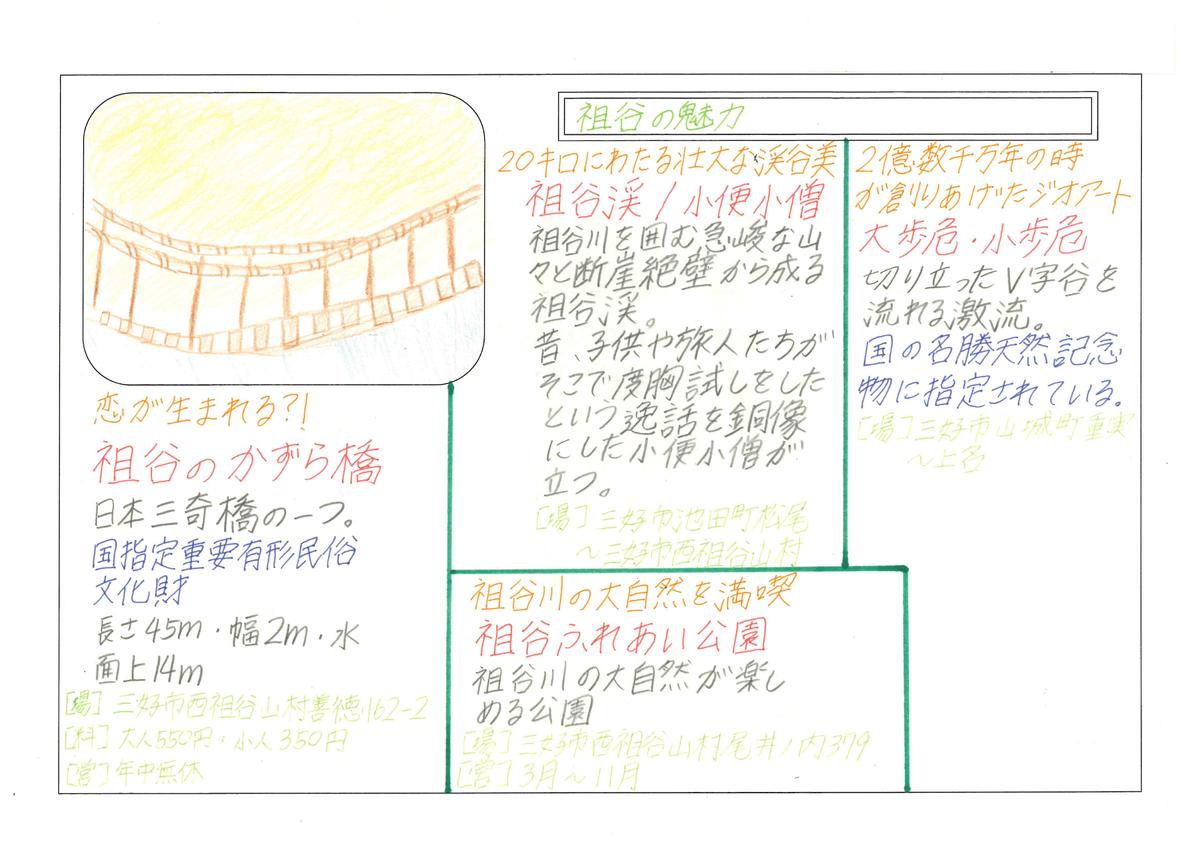 祖谷の魅力
恋が生まれる?!
祖谷のかずら橋
日本三奇橋の一つ。
国指定重要有形民俗
文化財
長さ45m・幅2m・水
面上14m
[場]三好市西祖谷山村善徳162-2
[料]大人550円・小人350円
[営]年中無休
20キロにわたる壮大な渓谷美
祖谷渓/小便小僧
祖谷川を囲む急峻な山
々と断崖絶壁から成る
祖谷渓。
昔、子供や旅人たちが
そこで度胸試しをした
という逸話を銅像
にした小便小僧が
立つ。
[場]三好市池田町松尾
〜三好市西祖谷山村
2億数千万年の時
が創りあげたジオアート
大歩危・小歩危
切り立ったV字谷を
流れる激流。
国の名勝天然記念
物に指定されている。
[場]三好市山城町重実
〜上名
祖谷川の大自然を満喫
祖谷ふれあい公園
祖谷川の大自然が楽し
める公園
[場]三好市西祖谷山村尾井ノ内379
[営]3月〜11月